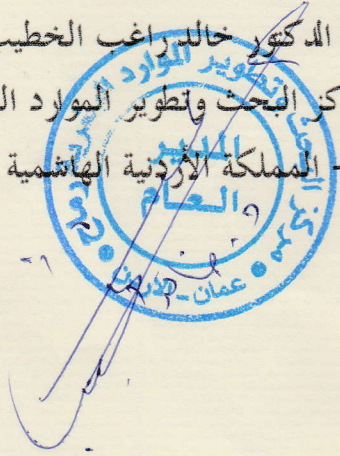 الدكتور خالد راغب الخطيب
كز البحث وتطوير الموارد ال
- المملكة الأردنية الهاشمية
مركز البحث وتطوير الموارد البشرية رماح
المدير
العام
عمان - الأردن